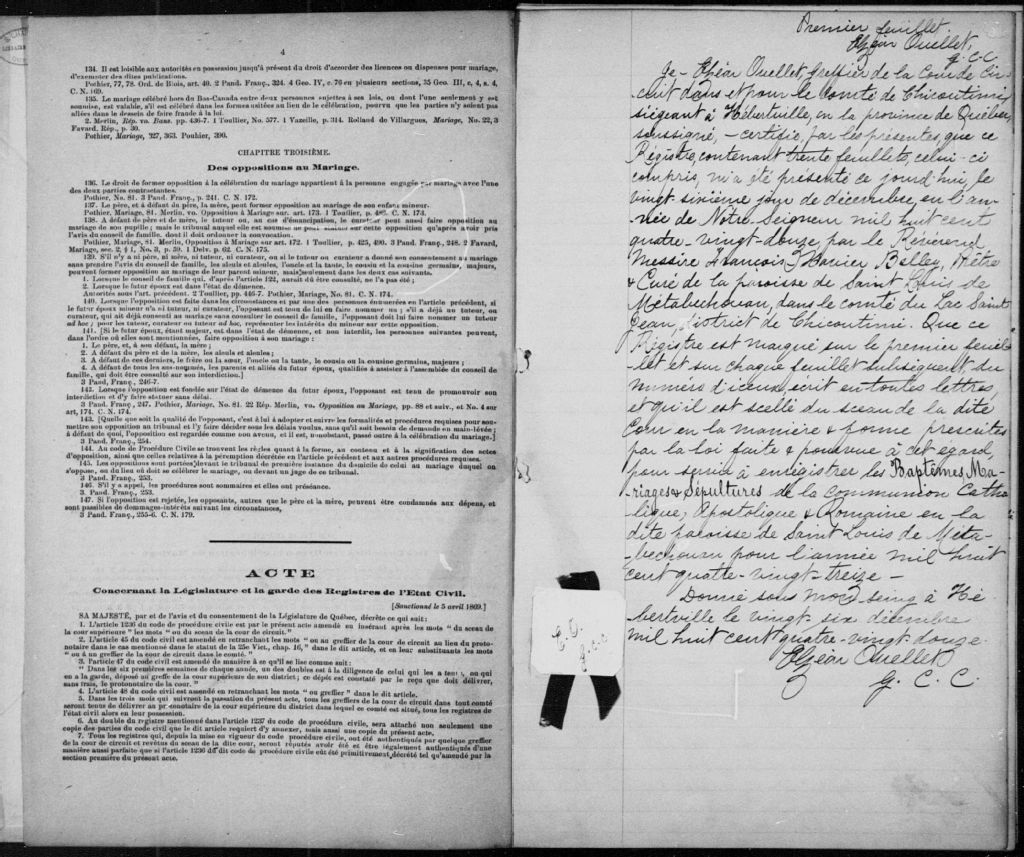 4
134. Il est loisible aux autorités en possession jusqu'à présent du droit d'accorder des licences ou dispenses pour mariage,
d'exempter des dites publications.
Pothier, 77, 78. Ord. de Blois, art. 40. 2 Pand. Franç., 324. 4 Geo. IV, c. 76 en plusieurs sections, 35 Geo. III, c. 4, s. 4,
C. N. 169.
135. Le mariage célébré hors du Bas-Canada entre deux personnes sujettes à ses lois, ou dont l'une seulement y est
soumise, est valable, s'il est célébré dans les formes usitées au lieu de la célébration, pourvu que les parties n'y soient pas
allées dans le dessein de faire fraude à la loi.
2. Merlin, Rép. vo. Bans. pp. 436-7. 1 Toullier, No. 577. 1 Vazeille, p. 314. Rolland de Villargues, Mariage, No. 22, 3
Favard, Rép., p. 39.
Pothier, Mariage, 327, 363. Pouhier, 390.
CHAPITRE TROISIÈME.
Des oppositions au Mariage.
136. Le droit de former opposition à la célébration du mariage appartient à la personne engagée par mariage avec l'une
des deux parties contractantes.
Pothier, No. 81. 3 Pand. Franç., p. 241. C. N. 172.
137. Le père, et à défaut du père, la mère, peut former opposition au mariage de son enfant mineur.
Pothier, Mariage, 81. Merlin, vo. Opposition à Mariage sur. art. 173. 1 Toullier, p. 486. C. N. 173.
138. A défaut de père et de mère, le tuteur ou, au cas d'émancipation, le curateur peut aussi faire opposition au
mariage de son pupille ; mais le tribunal auquel elle est soumise ne peut statuer sur cette opposition qu'après avoir pris
l'avis du conseil de famille, dont il doit ordonner la convocation.
Pothier, Mariage, 81. Merlin, Opposition à Mariage sur art. 172. 1 Toullier, p. 425, 490. 3 Pand. Franç., 248. 2 Favard,
Mariage, sec. 2, § 1, No. 3, p. 59. 1 Delv. p. 62. C. N. 175.
139. S'il n'y a ni père, ni mère, ni tuteur, ni curateur, ou si le tuteur ou curateur a donné son consentement au mariage
sans prendre l'avis du conseil de famille, les aïeuls et aïeules, l'oncle et la tante, le cousin et la cousine germains, majeurs,
peuvent former opposition au mariage de leur parent mineur, mais seulement dans les deux cas suivants.
1. Lorsque le conseil de famille qui, d'après l'article 122, aurait dû être consulté, ne l'a pas été ;
2. Lorsque le futur époux est dans l'état de démence.
Autorités sous l'art. précédent. 2 Toullier, pp. 446-7. Pothier, Mariage, No. 81. C. N. 174.
140. Lorsque l'opposition est faite dans les circonstances et par une des personnes énumérées en l'article précédent, si
le futur époux mineur n'a ni tuteur, ni curateur, l'opposant est tenu de lui en faire nommer un ; s'il a déjà un tuteur, ou
curateur, qui ait déjà consenti au mariage sans consulter le conseil de famille, l'opposant doit lui faire nommer un tuteur
ad hoc ; pour les tuteur, curateur ou tuteur ad hoc, représenter les intérêts du mineur sur cette opposition.
141. [Si le futur époux, étant majeur, est dans l'état de démence, et non interdit, les personnes suivantes peuvent,
dans l'ordre où elles sont mentionnées, faire opposition à son mariage :
1. Le père, et, à son défaut, la mère ;
2. A défaut du père et de la mère, les aïeuls et aïeules ;
3. A défaut de ces derniers, le frère ou la sœur, l'oncle ou la tante, le cousin ou la cousine germains, majeurs ;
4. A défaut de tous les sus-nommés, les parents et alliés du futur époux, qualifiés à assister à l'assemblée du conseil de
famille, qui doit être consulté sur son interdiction.]
3 Pand. Franç., 246-7.
142. Lorsque l'opposition est fondée sur l'état de démence du futur époux, l'opposant est tenu de promouvoir son
interdiction et d'y faire statuer sans délai.
3 Pand. Franç., 247. Pothier, Mariage, No. 81. 22 Rép. Merlin, vo. Opposition au Mariage, pp. 88 et suiv., et No. 4 sur
art, 174. C. N. 174.
143. [Quelle que soit la qualité de l'opposant, c'est à lui à adopter et suivre les formalités et procédures requises pour sou-
mettre son opposition au tribunal et l'y faire décider sous les délais voulus, sans qu'il soit besoin de demande en main-levée ;
à défaut de quoi, l'opposition est regardée comme non avenue, et il est, nonobstant, passé outre à la célébration du mariage.]
3 Pand. Franç., 254.
144. Au code de Procédure Civile se trouvent les règles quant à la forme, au contenu et à la signification des actes
d'opposition, ainsi que celles relatives à la péremption décrétée en l'article précédent et aux autres procédures requises.
145. Les oppositions sont portées devant le tribunal de première instance du domicile de celui au mariage duquel on
s'oppose, ou du lieu où doit se célébrer le mariage, ou devant un juge de ce tribunal.
3 Pand. Franç., 253.
146. S'il y a appel, les procédures sont sommaires et elles ont préséance.
3. Pand. Franç., 253.
147. Si l'opposition est rejetée, les opposants, autres que le père et la mère, peuvent être condamnés aux dépens, et
sont passibles de dommages-intérêts suivant les circonstances,
3 Pand. Franç., 255-6. C. N. 179.
ACTE
Concernant la Législature et la garde des Registres de l'Etat Civil.
[Sanctionné le 5 avril 1869.]
SA MAJESTÉ, par et de l'avis et du consentement de la Législature de Québec, décrète ce qui suit :
1. L'article 1236 du code de procédure civile est par le présent acte amendé en insérant après les mots " du sceau de
la cour supérieure " les mots " ou du sceau de la cour de circuit."
2. L'article 45 du code civil est amendé en retranchant les mots " ou au greffier de la cour de circuit au lieu du proto-
notaire dans le cas mentionné dans le statut de la 25e Vict., chap. 16," dans le dit article, et en leur substituants les mots
" ou à un greffier de la cour de circuit dans le comté."
3. Particle 47 du code civil est amendé de manière à ce qu'il se lise comme suit :
" Dans les six premières semaines de chaque année, un des doubles est à la diligence de celui qui les a tenus, ou qui
en a la garde, déposé au greffe de la cour supérieure de son district ; ce dépôt est constaté par le reçu que doit délivrer,
sans frais, le protonotaire de la cour. "
4. L'article 48 du code civil est amendé en retranchant les mots " ou greffier " dans le dit article.
5. Dans les trois mois qui suivront la passation du présent acte, tous les greffiers de la cour de circuit dans tout comté
seront tenus de délivrer au protonotaire de la cour supérieure du district dans lequel ce comté est situé, tous les registres de
l'état civil alors en leur possession.
6. Au double du registre mentionné dans l'article 1237 du code de procédure civile, sera attaché non seulement une
copie des parties du code civil que le dit article requiert d'y annexer, mais aussi une copie du présent acte.
7. Tous les registres qui, depuis la mise en vigueur du code de procédure civile, ont été authentiqués par quelque greffier
de la cour de circuit et revêtus du sceau de la dite cour, seront réputés avoir été et être légalement authentiqués d'une
manière aussi parfaite que si l'article 1236 du dit code de procédure civile eût été primitivement décrété tel qu'amendé par la
section première du présent acte.
Premier feuillet.
Elzéar Ouellet,
g. C. C.
Je - Elzéar Ouellet, Greffier de la Cour de Cir-
cuit dans et pour le Comté de Chicoutimi
siégeant à Hébertville, en la province de Québec,
soussigné, - certifie, par les présentes, que ce
Régistre, contenant trente feuillets, celui-ci
compris, m'a été présenté ce jourd'hui, le
vingt sixième jour de décembre, en l'an-
née de Notre-Seigneur mil huit cent
quatre-vingt-douze, par le Révérend
Messire François Xavier Belley, Prêtre
& Curé de la paroisse de Saint Louis de
Métabechouan, dans le comté du Lac Saint
Jean, district de Chicoutimi. Que ce
Régistre est marqué sur le premier feuil-
let et sur chaque feuillet subséquent, du
numéro d'iceux, écrit en toutes lettres,
et qu'il est scellé du sceau de la dite
Cour en la manière & forme prescrites
par la loi faite & pourvue à cet égard,
pour servir à enrégistrer les Baptêmes, Ma-
riages & Sépultures de la communion Catho-
lique, Apostolique & Romaine en la
dite paroisse de Saint Louis de Méta-
bechouan pour l'année mil huit
cent quatre-vingt-treize -
Donné sous mon seing à Hé-
bertville le vingt-six décembre
mil huit cent quatre-vingt douze.
Elzéar Ouellet
G. C. C.
E. O.
g. c. c.